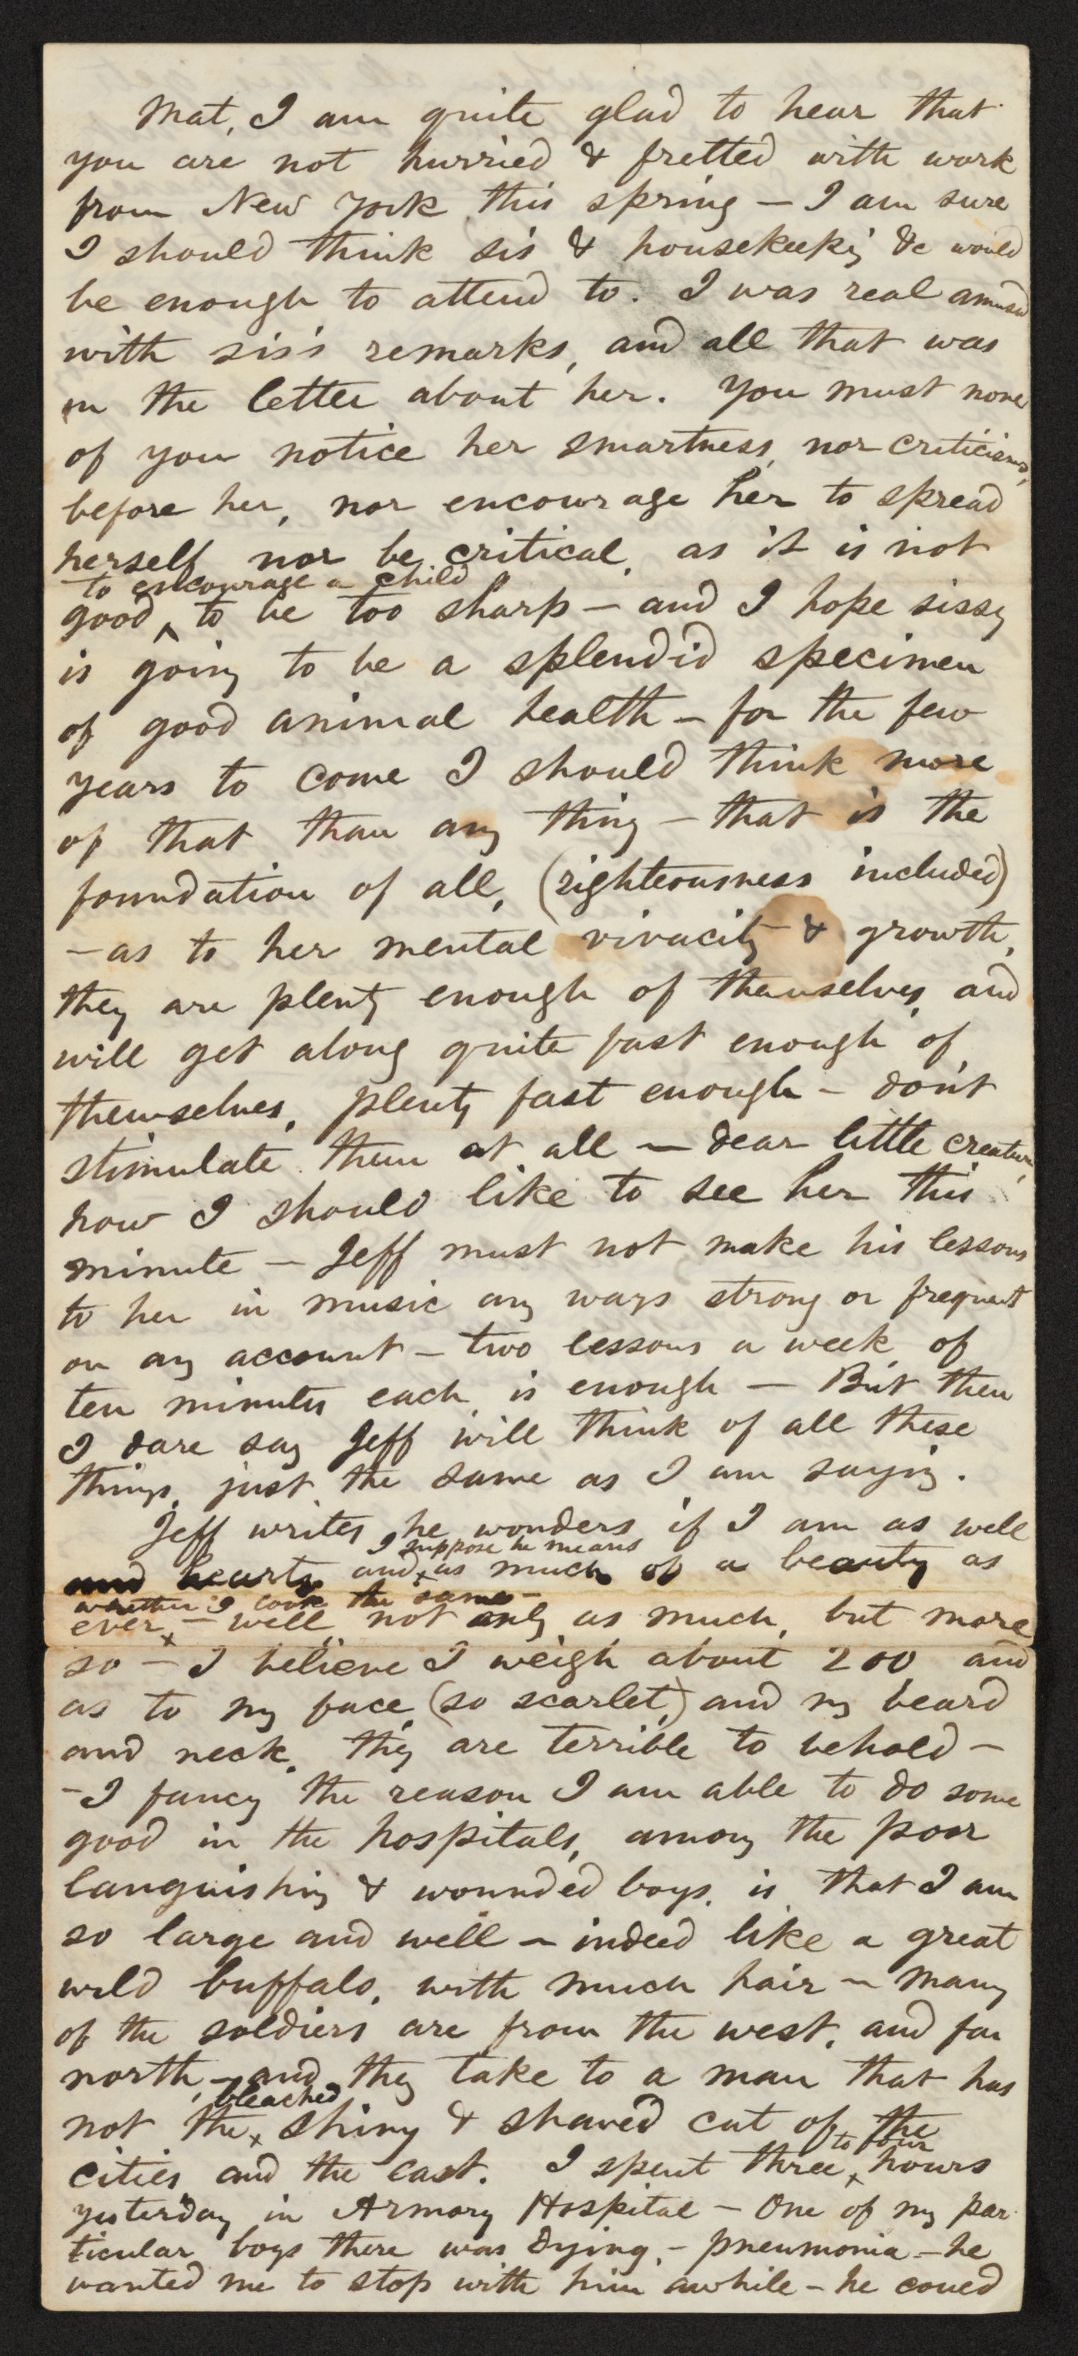 Mat, I am quite glad to hear that
you are not hurried & fretted with work
from New York this spring — I am sure
I should think sis & housekeeping &c would
be enough to attend to. I was real amused
with sis's remarks, and all that was
in the letter about her. You must none
of you notice her smartness, nor criticisms,
before her, nor encourage her to spread
herself nor be critical, as it is not
to encourage a child
good ^ to be too sharp — and I hope sissy
is going to be a splendid specimen
of good animal health — for the few
years to come I should think more
of that than any thing — that is the
foundation of all, (righteousness included)
— as to her mental vivacity & growth,
they are plenty enough of themselves, and
will get along quite fast enough of
themselves, plenty fast enough — don't
stimulate them at all — dear little creature,
how I should like to see her this
minute — Jeff must not make his lessons
to her in music any ways strong or frequent
on any account — two lessons a week, of
ten minutes each, is enough — But then
I dare say Jeff will think of all these
things, just the same as I am saying.
Jeff writes he wonders if I am as well
I suppose he means
and hearty, and x as much of a beauty as
whether I look the same —
ever, x — well, not only as much, but more
so — I believe I weigh about 200 and
as to my face, (so scarlet,) and my beard
and neck, they are terrible to behold —
— I fancy the reason I am able to do some
good in the hospitals, among the poor
languishing & wounded boys, is that I am
so large and well — indeed like a great
wild buffalo, with much hair — many
of the soldiers are from the west, and far
north, — and they take to a man that has
bleached
not the x shiny & shaved cut of the
to four
cities and the east. I spent three x hours
yesterday in Armory Hospital — One of my par
ticular boys there was dying, — pneumonia — he
wanted me to stop with him awhile — he could